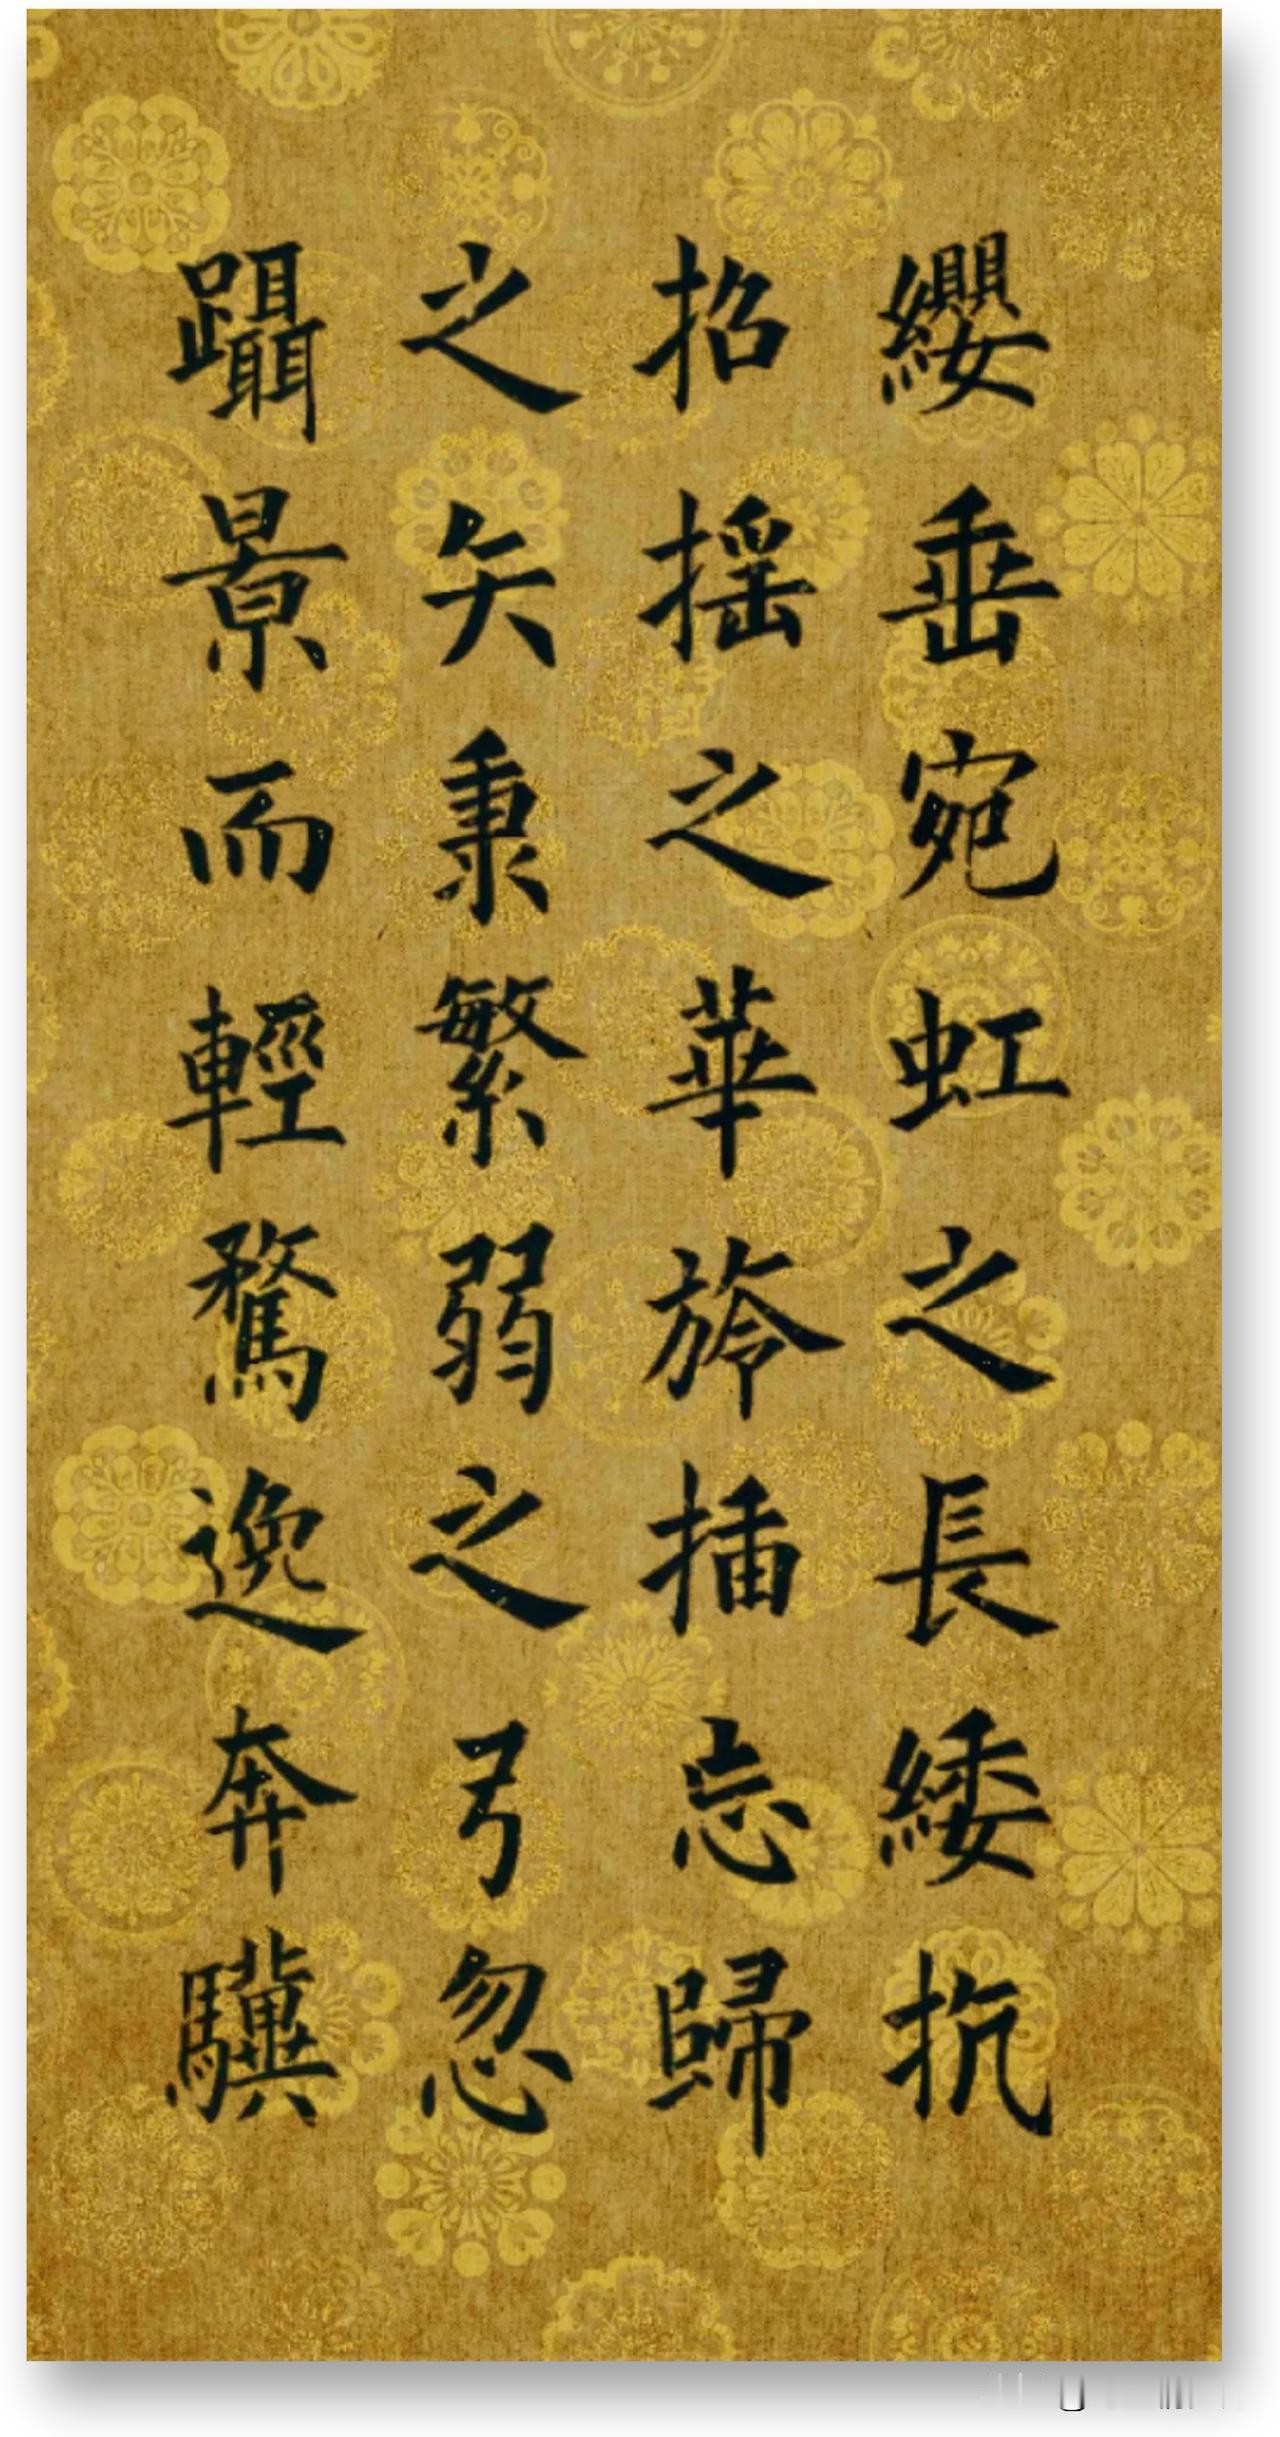 纓垂宛虹之長緌抗
招摇之華旍插忘歸
之矢秉繁弱之弓忽
躡景而輕騖逸奔驥